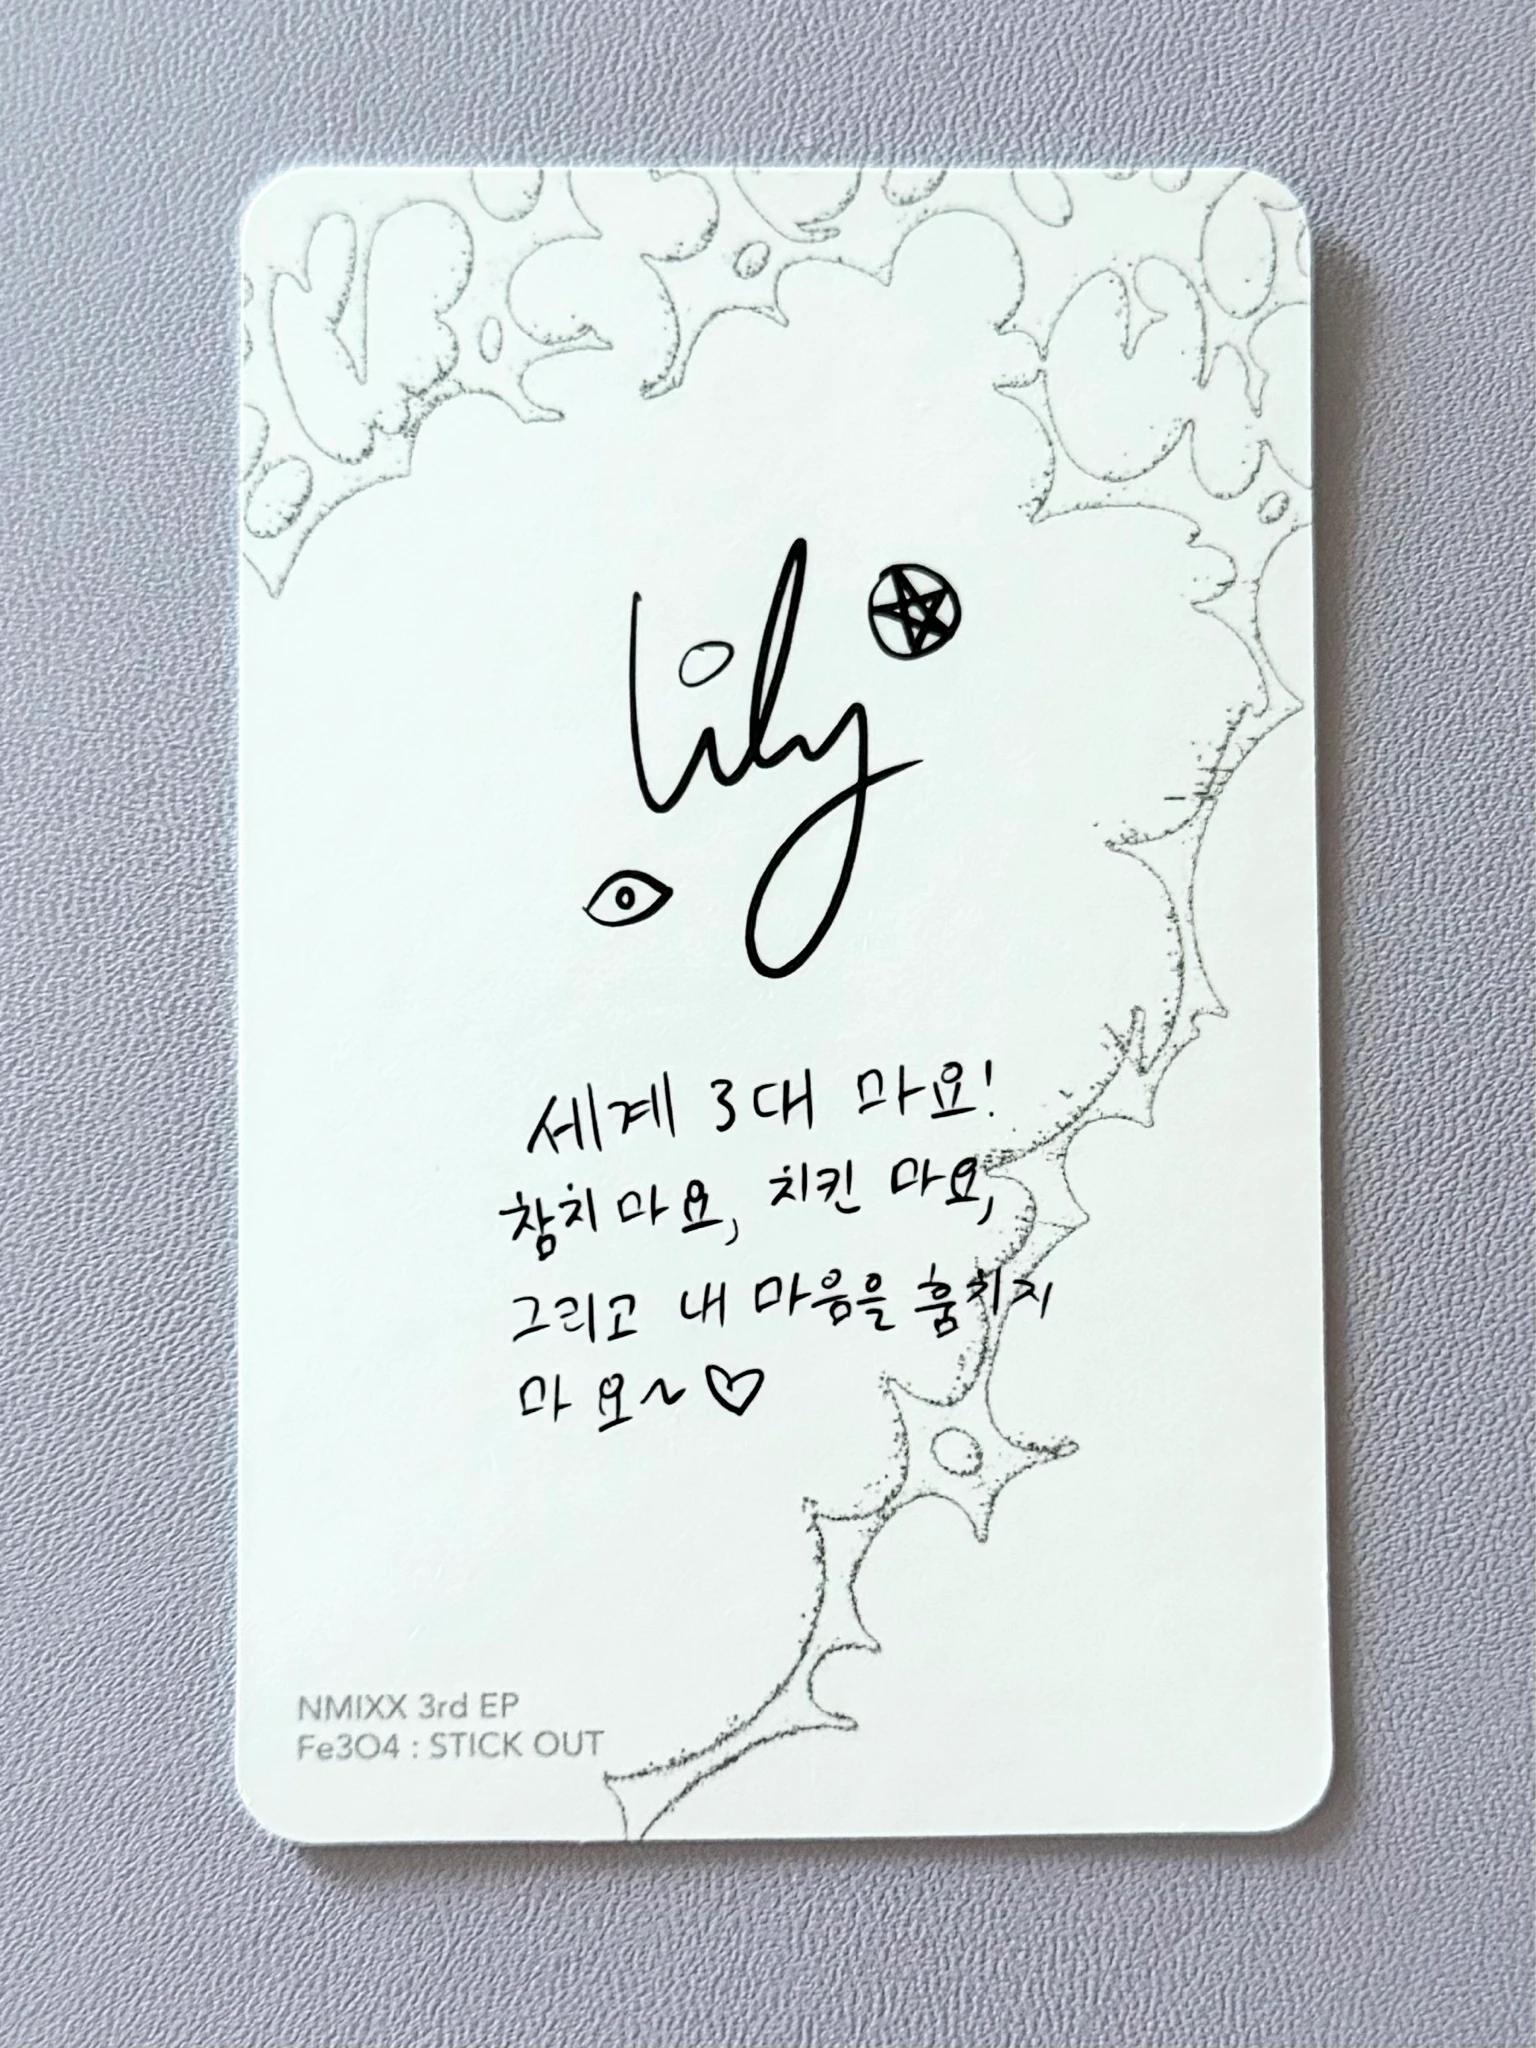 lily
세계 3대 마요!
참치마요, 치킨 마요,
그리고 내 마음을 훔치지
마요~♡
NMIXX 3rd EP
Fe3O4 : STICK OUT